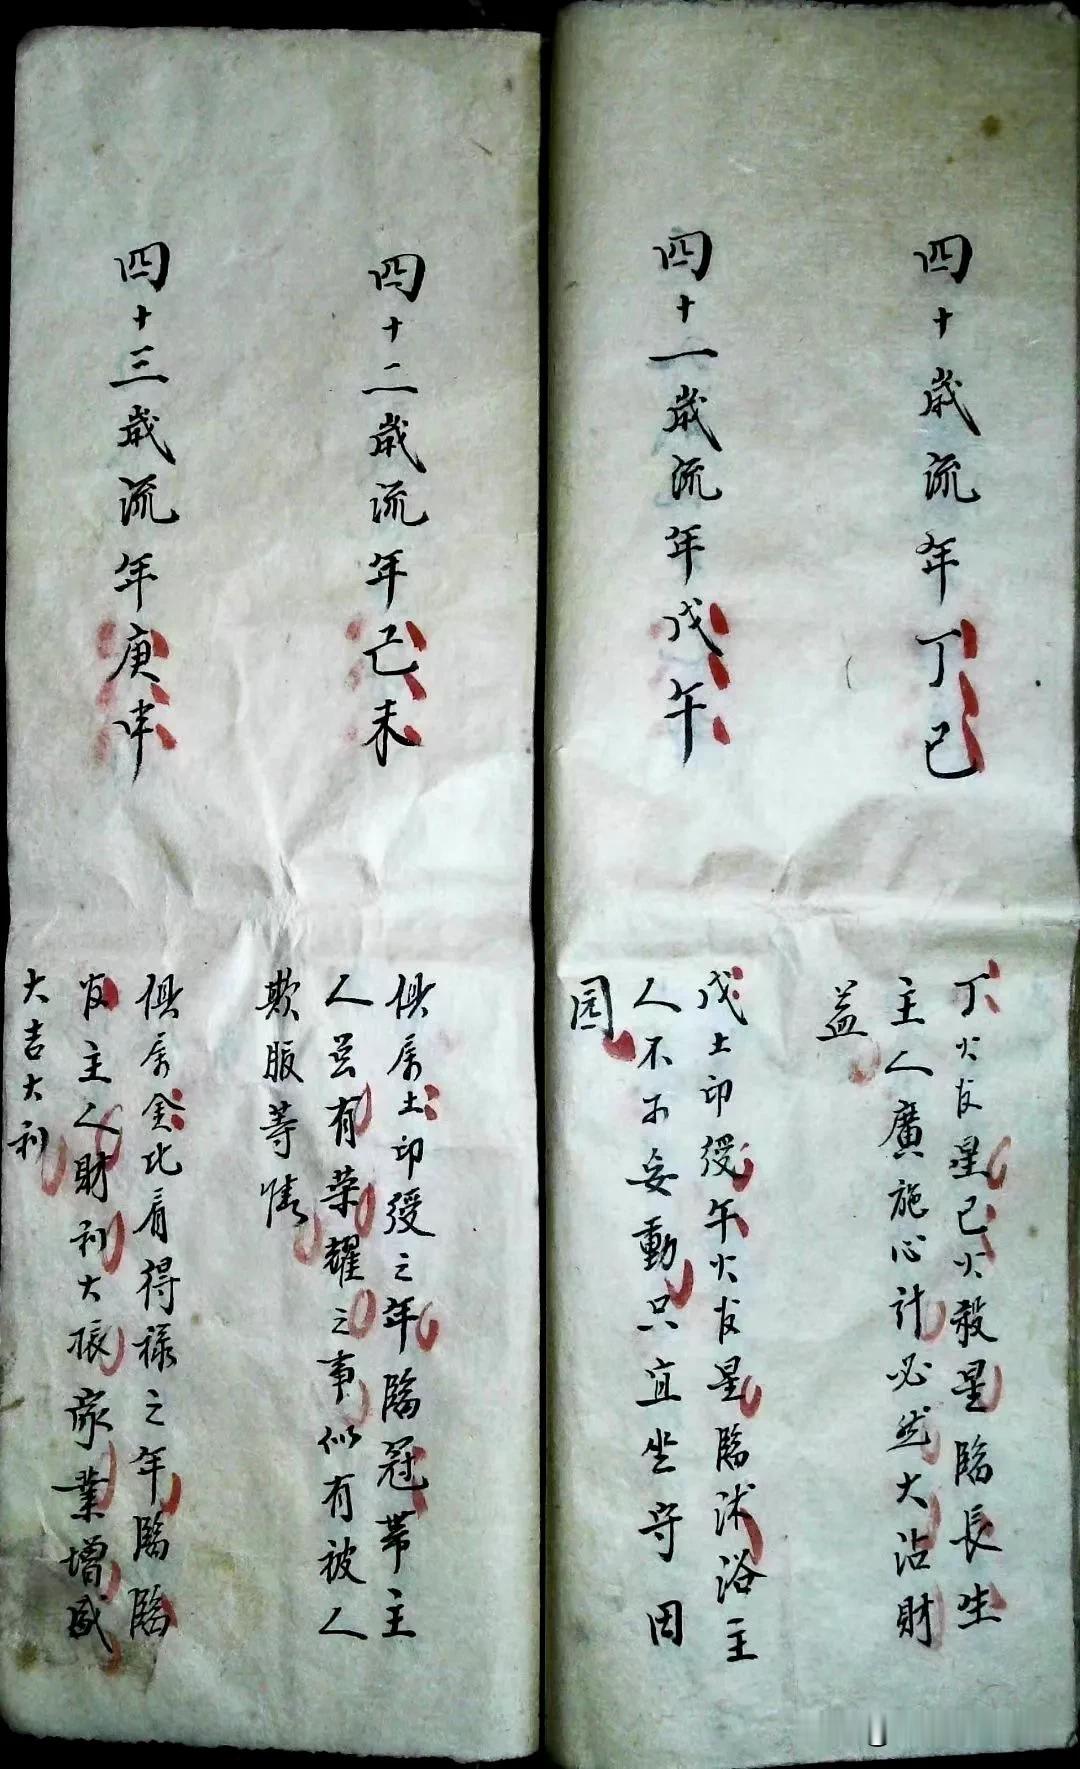 四十歲流年丁巳
丁火官星巳火殺星臨長生
主人廣施心計必然大沾財
益
四十一歲流年戊午
戊土印綬午火官星臨沐浴主
人不可妄動只宜坐守田
园
四十二歲流年己未
俱属土印綬之年臨冠帶主
人並有荣耀之事似有被人
欺服等情
四十三歲流年庚申
俱属金比肩得禄之年臨臨
官主人財利大振家業增盛
大吉大利